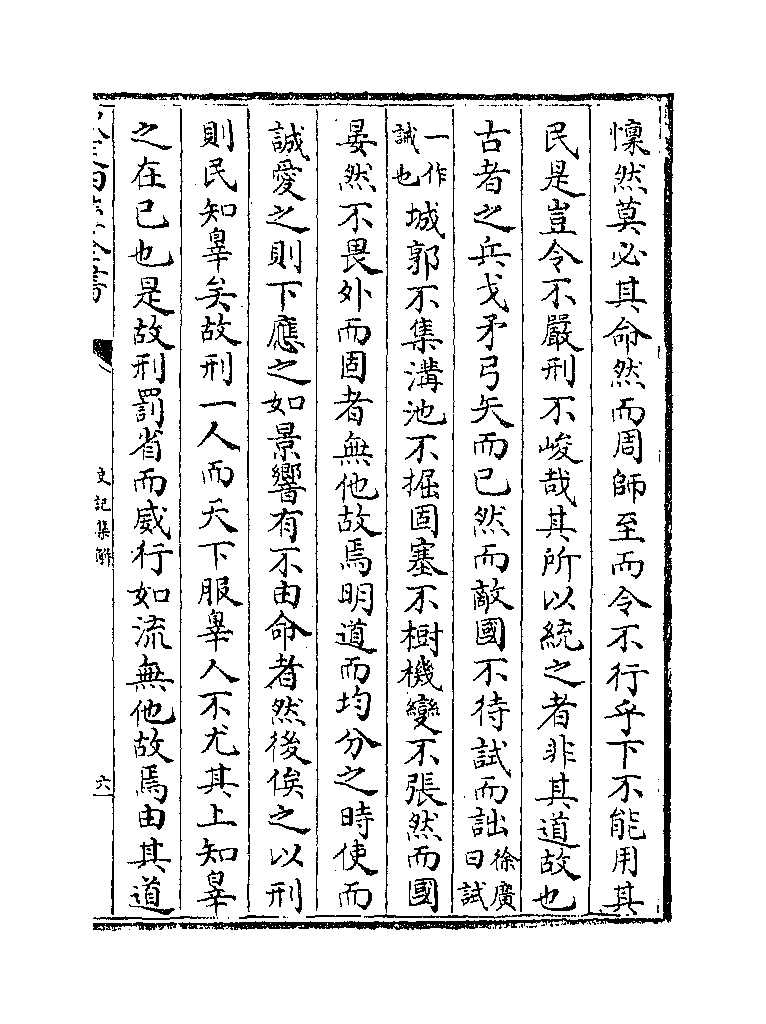 懍然莫必其命然而周師至而令不行乎下不能用其
民是豈令不嚴刑不峻哉其所以統之者非其道故也
古者之兵戈矛弓矢而已然而敵國不待試而詘徐廣曰試
一作誠也城郭不集溝池不掘固塞不樹機變不張然而國
晏然不畏外而固者無他故焉明道而均分之時使而
誠愛之則下應之如景響有不由命者然後俟之以刑
則民知辠矣故刑一人而天下服辠人不尤其上知辠
之在已也是故刑罰省而威行如流無他故焉由其道
史記集解
六